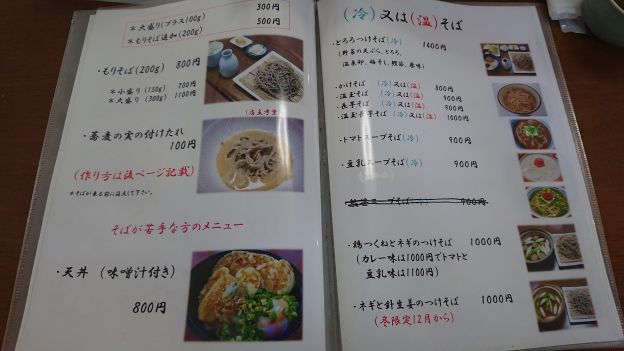 300円
＊大盛り(プラス100g)
500円
＊もりそば追加(200g)
・もりそば(200g) 800円
＊小盛り(150g) 700円
＊大盛り(300g) 1100円
・蕎麦の実の付けたれ
100円
(作り方は後ページ記載)
＊そばが来る前に注文して下さい。
そばが苦手な方のメニュー
・天丼 (味噌汁付き)
800円
(冷)又は(温)そば
・とろろつけそば(冷) 1400円
(野菜の天ぷら、とろろ、
温泉卵、梅干し、鰹節、薬味)
・かけそば (冷)又は(温) 800円
・温玉そば (冷)又は(温) 900円
・長芋そば (冷)又は(温) 900円
・温玉長芋そば (冷)又は(温) 1000円
・トマトスープそば(冷) 900円
・豆乳スープそば(冷) 900円
スープそば(冷) 900円
・鶏つくねとネギのつけそば 1000円
(カレー味は1000円でトマトと
豆乳味は1100円)
・ネギと針生姜のつけそば 1000円
(冬限定12月から)